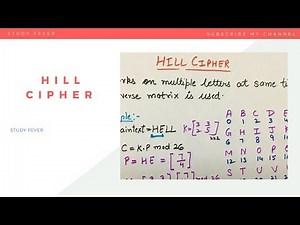 STUDY FEVER
SUBSCRIBE MY CHANNEL
HILL
CIPHER
STUDY FEVER
HILL CIPHER
rks on multiple letters at same ti
verse matrix is used.
ple:-
aintext = HELL K = [3 3
2 5] 2x2
C = K.P mod 26
P = HE = [7
4]
A B C D E
0 1 2 3 4
G H I J K
6 7 8 9
M N O P
12 13 14 15
S T U V